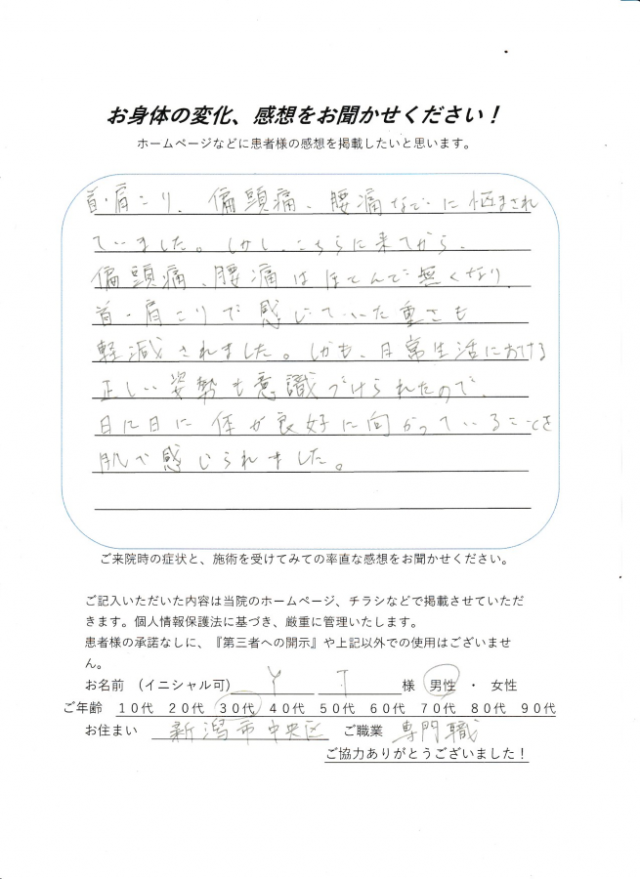 お身体の変化、感想をお聞かせください！
ホームページなどに患者様の感想を掲載したいと思います。
首・肩こり、偏頭痛、腰痛などに悩まされ
ていました。しかし、こちらに来てから、
偏頭痛、腰痛はほとんど無くなり、
首・肩こりで感じていた重さも
軽減されました。しかも、日常生活における
正しい姿勢も意識づけられたので、
日に日に体が良好に向かっていることを
肌で感じられました。
ご来院時の症状と、施術を受けてみての率直な感想をお聞かせください。
ご記入いただいた内容は当院のホームページ、チラシなどで掲載させていただ
きます。個人情報保護法に基づき、厳重に管理いたします。
患者様の承諾なしに、『第三者への開示』や上記以外での使用はございませ
ん。
お名前 （イニシャル可） Y T 様 男性 ・ 女性
ご年齢 10代 20代 30代 40代 50代 60代 70代 80代 90代
お住まい 新潟市中央区 ご職業 専門職
ご協力ありがとうございました！